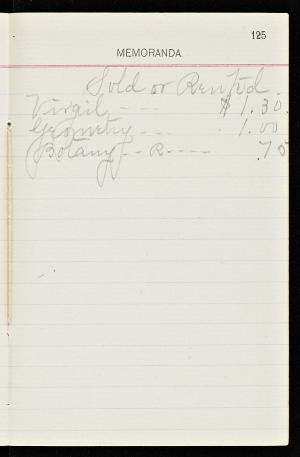 125
MEMORANDA.
Sold or Rented.
Virgil, --- $1.30.
Geometry --- . 1.00
Botany -- R ---- .75